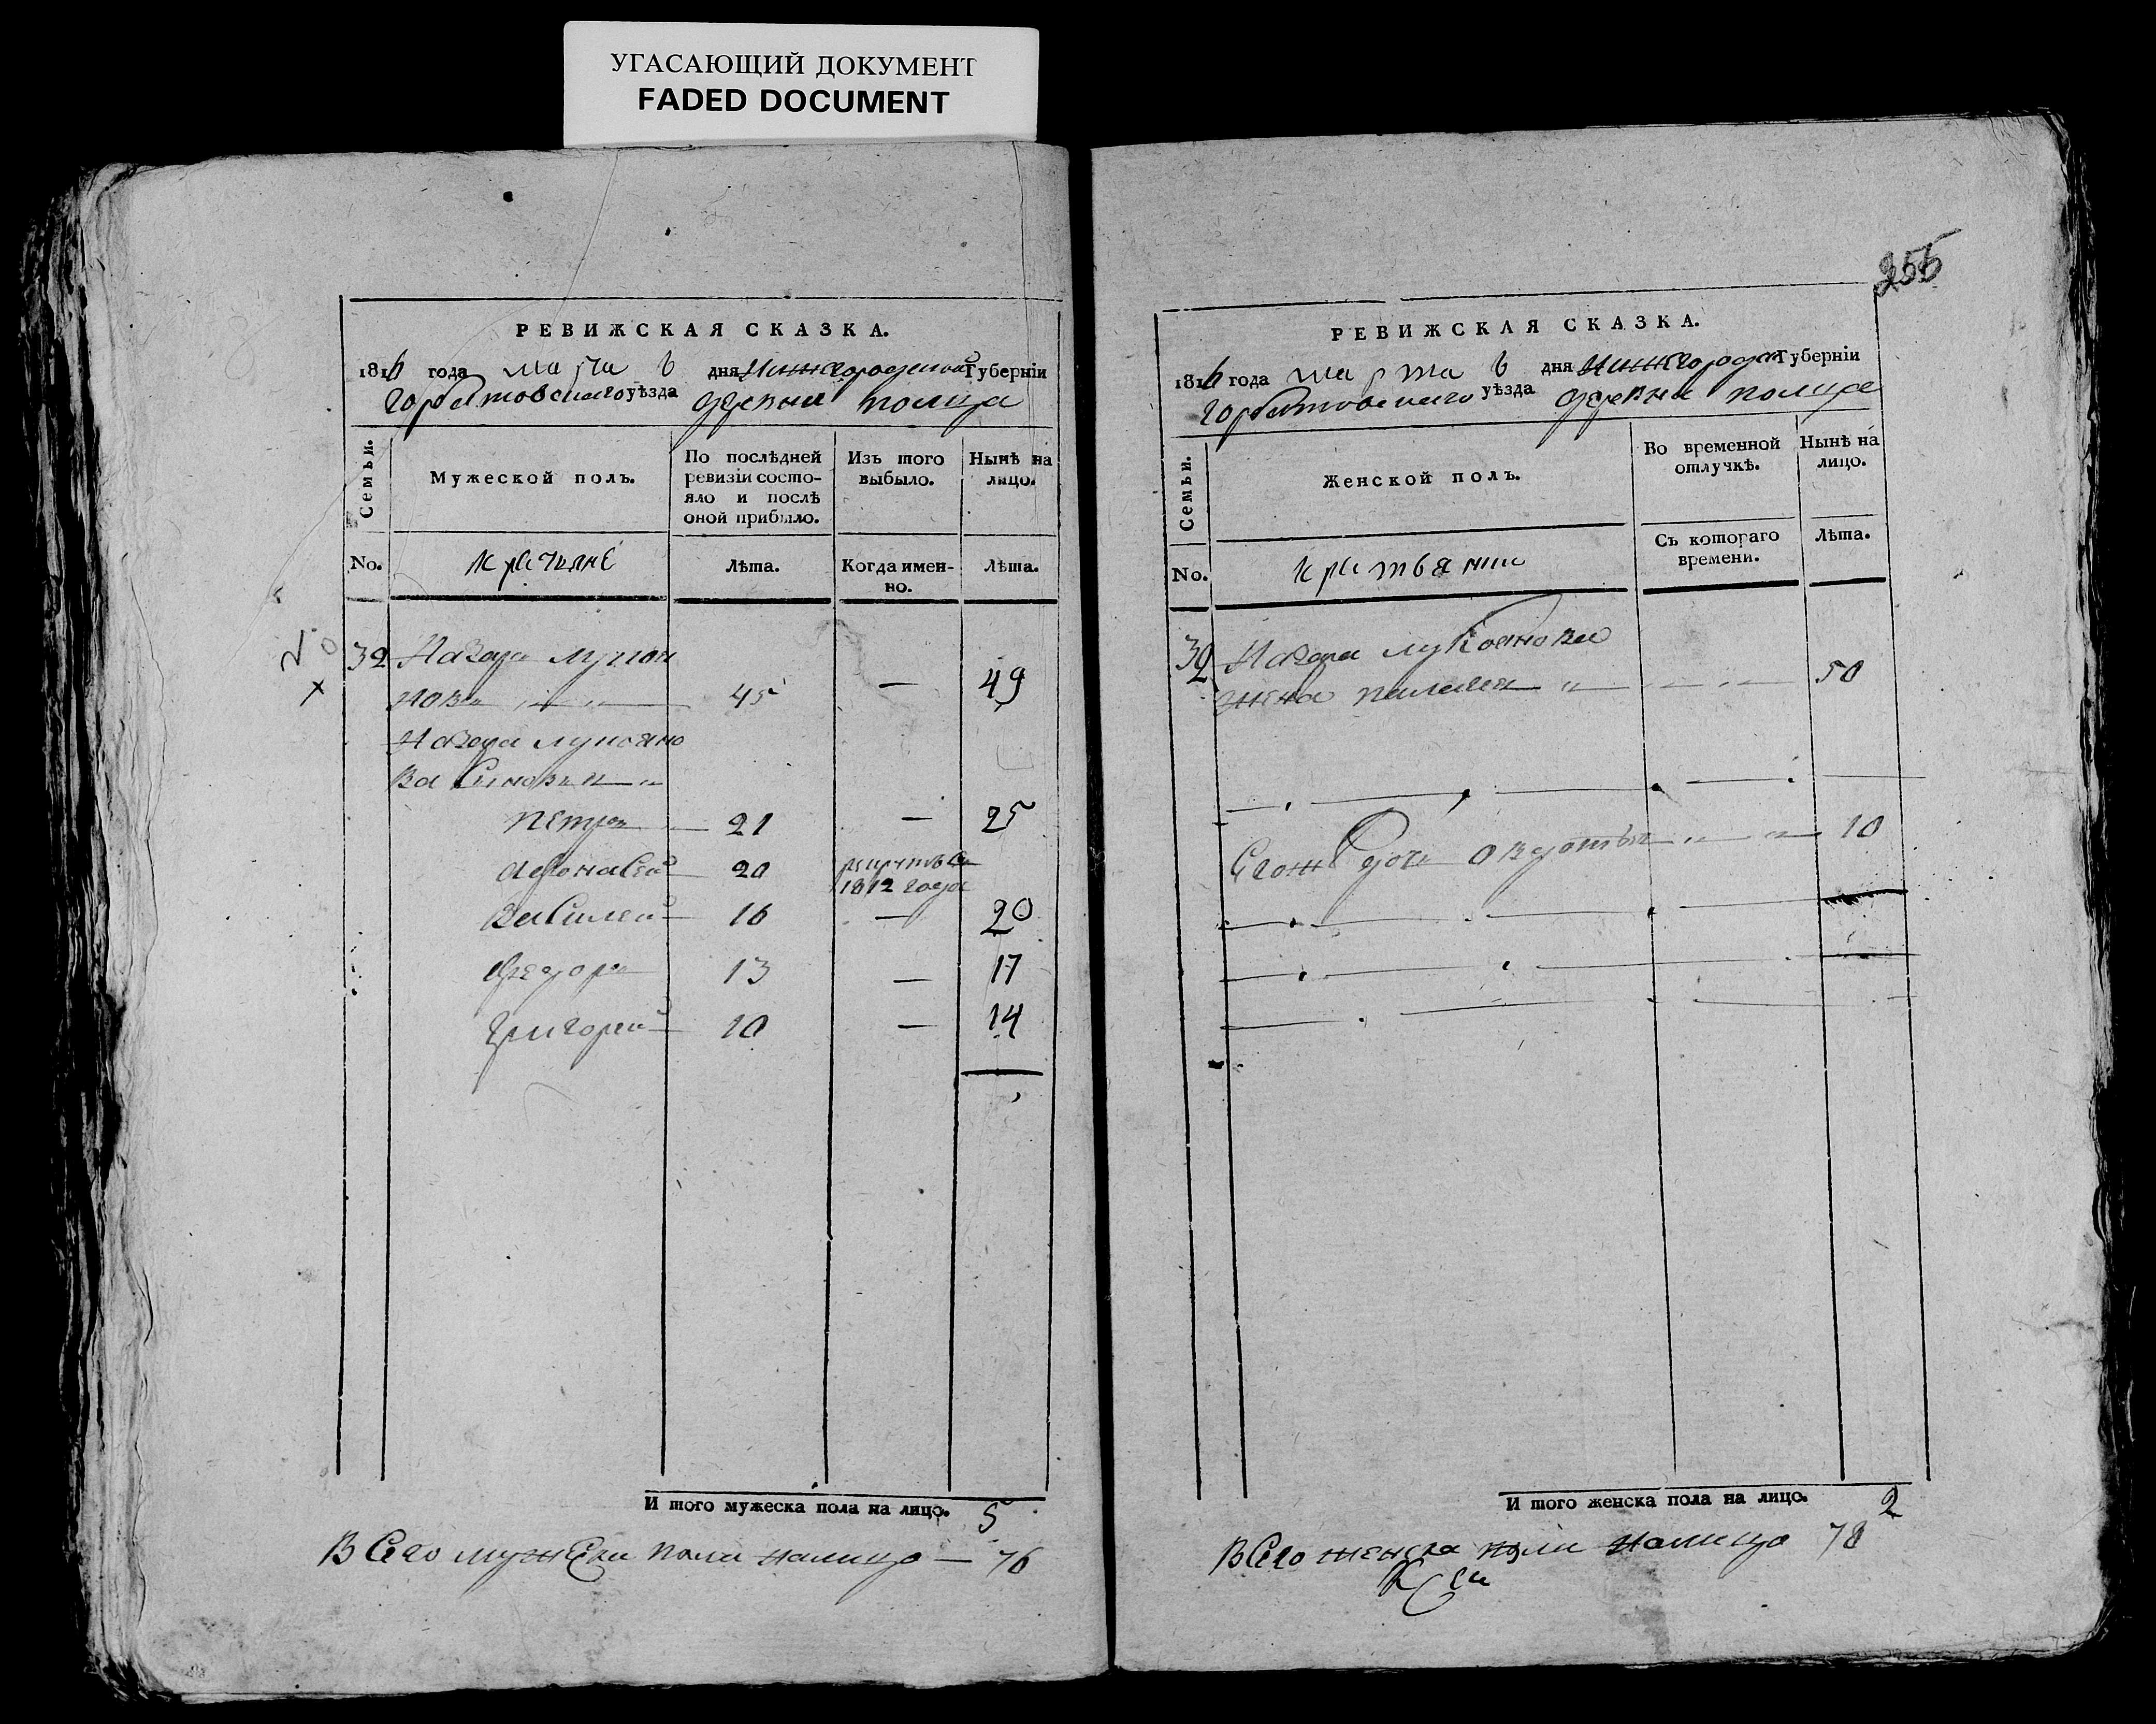 УГАСАЮЩИЙ ДОКУМЕНТ
FADED DOCUMENT
РЕВИЖСКАЯ СКАЗКА.
1816 года марта 6 дня Нижегородской Губернїи
Горбатовскаго уѣзда деревни полица
Семьи.
Мужеской полъ.
По послѣдней ревизїи состояло и послѣ оной прибыло.
Изъ того выбыло.
Нынѣ на лицо.
No.
Лѣта.
Когда именно.
Лѣта.
32 Назаръ лукоя
новъ 45 — 49
Назара лукояно
ва Сыновья
Петръ 21 — 25
Афонасей 20 1812 года
Василей 16 — 20
Федоръ 13 — 17
Григорей 10 — 14
И того мужеска пола на лицо. 5
Всего мужеска пола налицо — 76
255
РЕВИЖСКАЯ СКАЗКА.
1816 года марта 6 дня Нижегородск Губернїи
Горбатовскаго уѣзда деревни полице
Семьи.
Женской полъ.
Во временной отлучкѣ.
Нынѣ на лицо.
No.
Съ котораго времени.
Лѣта.
32 Назара лукоянова
жена пелагея 50
Егожъ дочь овдотья 10
И того женска пола на лицо. 2
Всего женска пола налицо 78